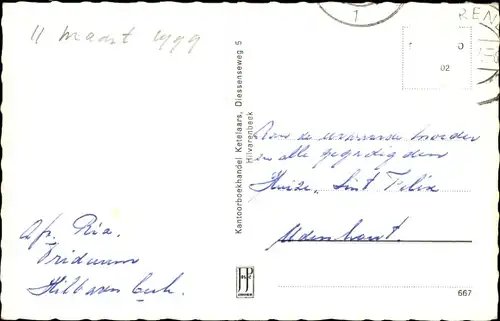 11 maart 1999
1
REN
02
Kantoorboekhandel Ketelaars, Diessenseweg 5
Hilvarenbeek
Aan de eerwaarde moeder
en alle
Huize, Sint Felix
Udenhout.
Afz. Ria.
Triduum
Hilvarenbeek.
JSP
667